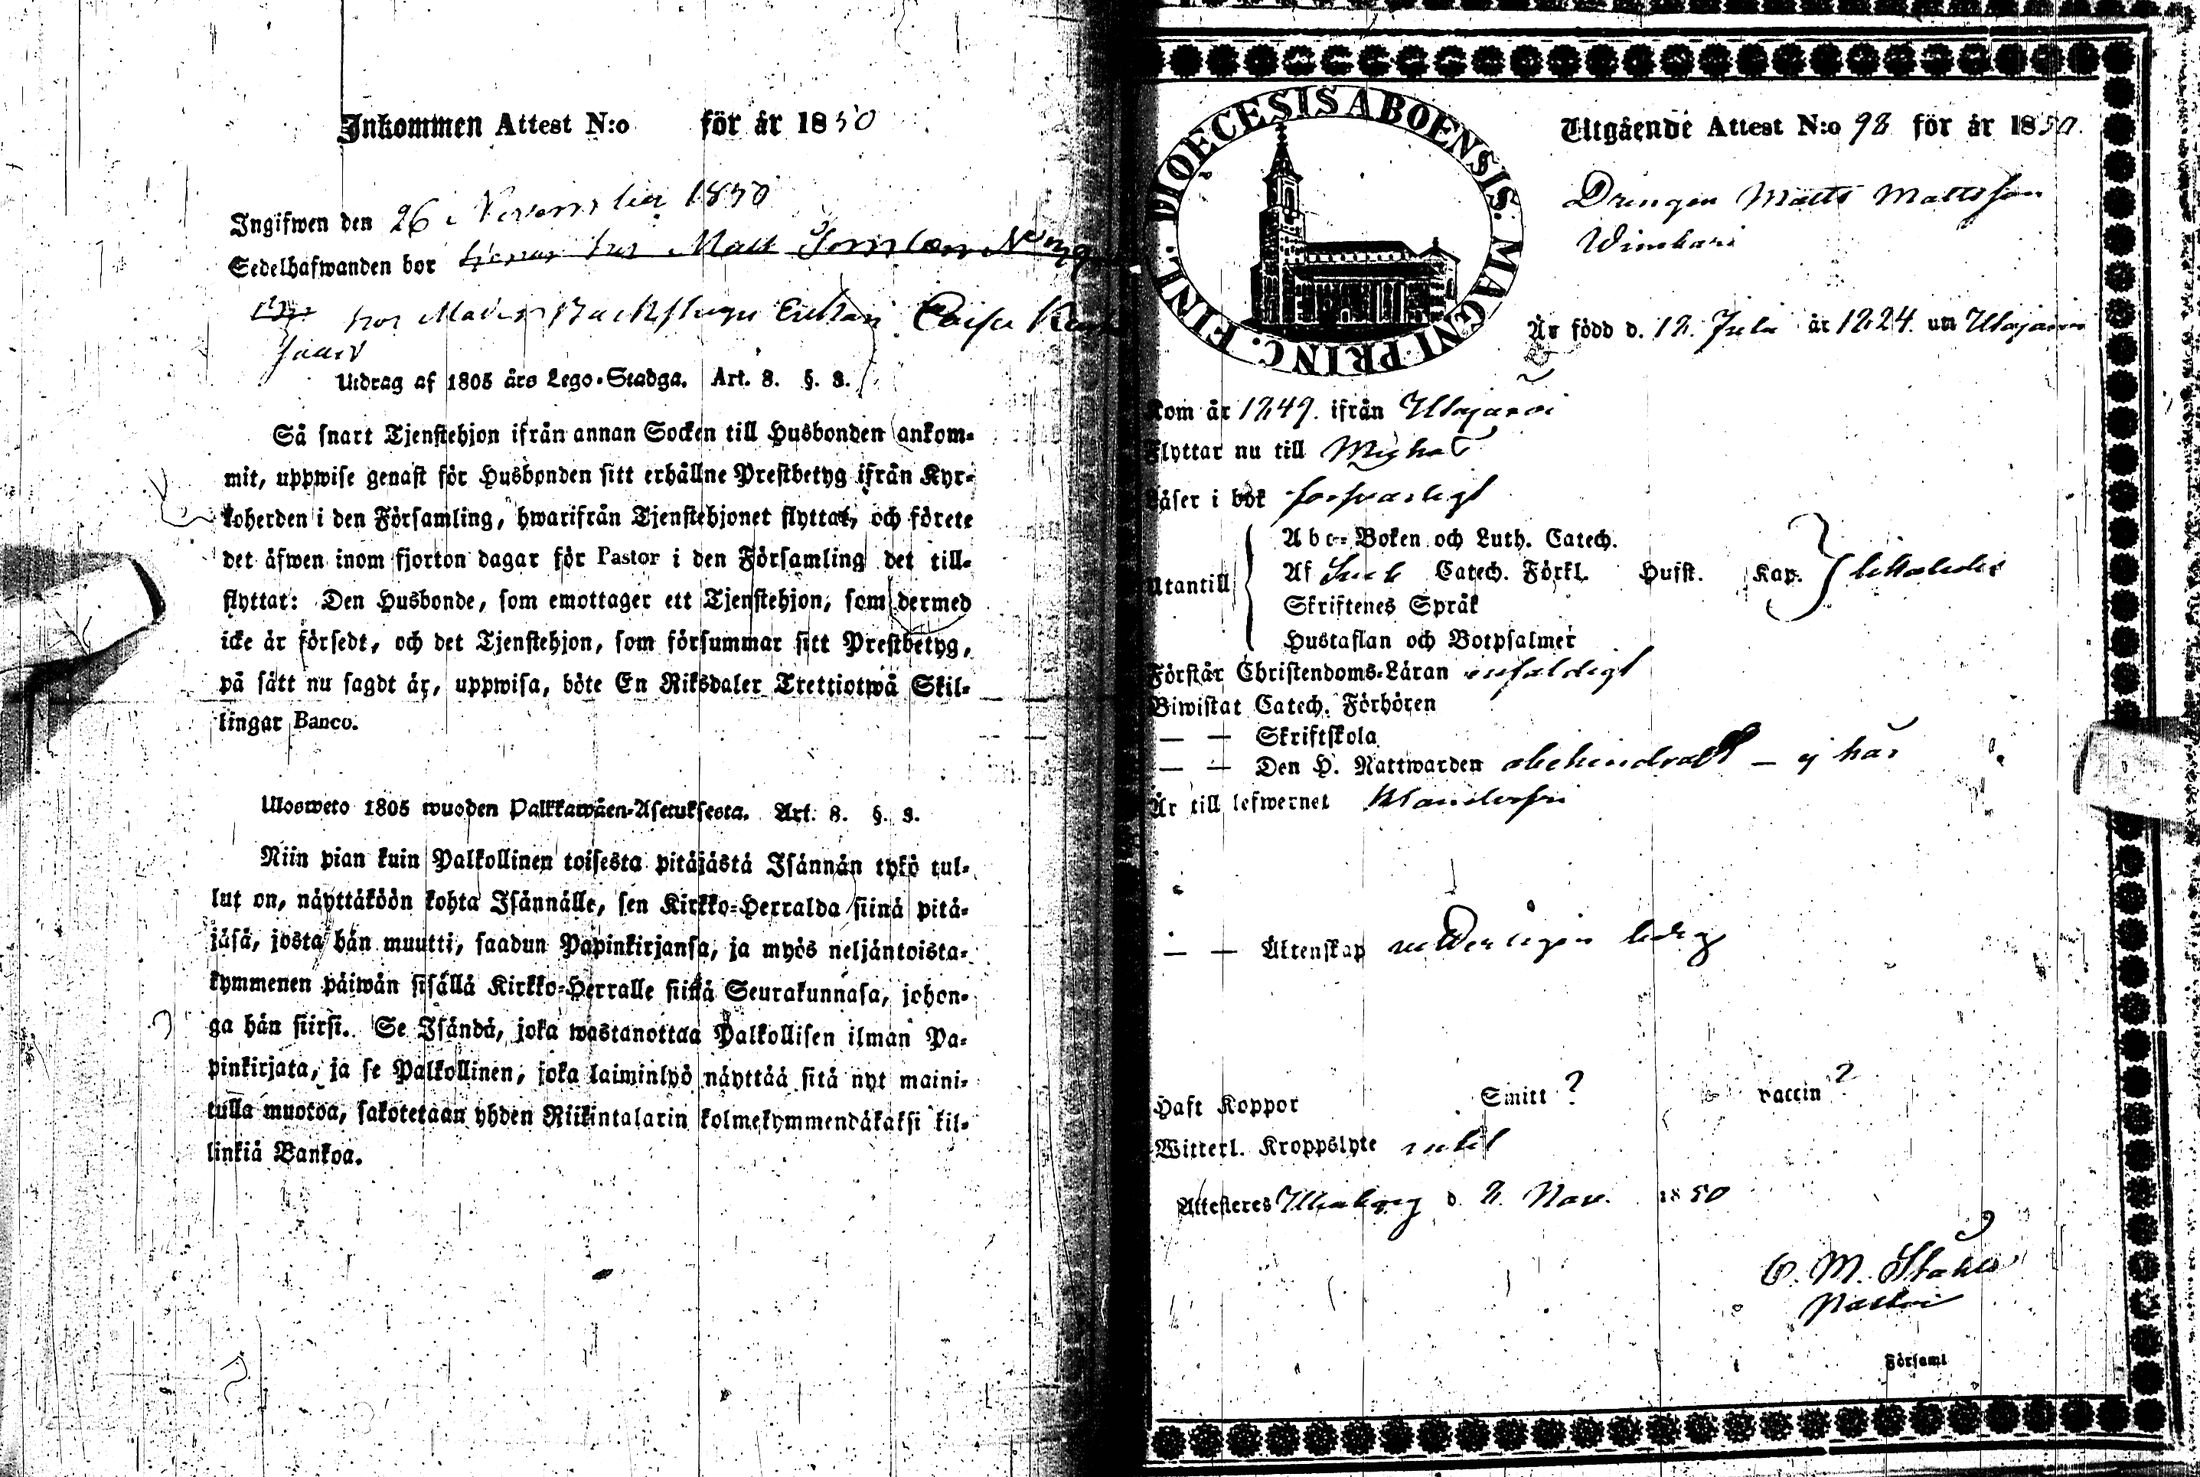 Inkommen Attest N:o för år 1850
Ingifwen den 26 November 1850
Sedelhafwanden bor tjenar hos Matt
hos
Utdrag af 1805 års Lego-Stadga. Art. 8. §. 3.
Så snart Tjenstehjon ifrån annan Socken till Husbonden ankom-
mit, uppwise genast för Husbonden sitt erhållne Prestbetyg ifrån Kyr-
koherden i den Församling, hwarifrån Tjenstehjonet flyttat, och förete
det äfwen inom fjorton dagar för Pastor i den Församling det till-
flyttat: Den Husbonde, som emottager ett Tjenstehjon, som dermed
icke är försedt, och det Tjenstehjon, som försummar sitt Prestbetyg,
på sätt nu sagdt är, uppwisa, böte En Riksdaler Trettiotwå Skil-
lingar Banco.
Ulosweto 1805 wuoden Palkkawäen-Asetuksesta. Art. 8. §. 3.
Niin pian kuin Palkollinen toisesta pitäjästä Isännän tykö tul-
lut on, näyttäköön kohta Isännälle, sen Kirkko-Herralda siinä pitä-
jäsä, josta hän muutti, saadun Papinkirjansa, ja myös neljäntoista-
kymmenen päiwän sisällä Kirkko-Herralle siinä Seurakunnasa, johon-
ga hän siirsi. Se Isändä, joka wastanottaa Palkollisen ilman Pa-
pinkirjata, ja se Palkollinen, joka laiminlyö näyttää sitä nyt maini-
tulla muotoa, sakotetaan yhden Riikintalarin kolmekymmendäkaksi kil-
linkiä Bankoa.
DIOECESIS ABOENSIS. MAGNI PRINC. FINL.
Utgående Attest N:o 98 för år 1850.
Drengen Matts Mattsson
Wimbari
Är född d. 12. Julii år 1824. uti Ulfsjärvi
Kom år 1849. ifrån
Flyttar nu till
Läser i bok försvarligt
Utantill
Abc-Boken och Luth. Catech.
Af Catech. Förkl. Hufst. Kap. likaledes
Skriftenes Språk
Hustaflan och Botpsalmer
Förstår Christendoms-Läran enfaldigt
Biwistat Catech. Förhören
— — Skriftskola
— — Den H. Nattwarden obehindradt — ej här
Är till lefwernet klanderfri
— — Äktenskap ledig
Haft Koppor Smitt ? vaccin ?
Witterl. Kroppslyte intet
Attesteres d. 2. Nov. 1850
Pastor
Församl